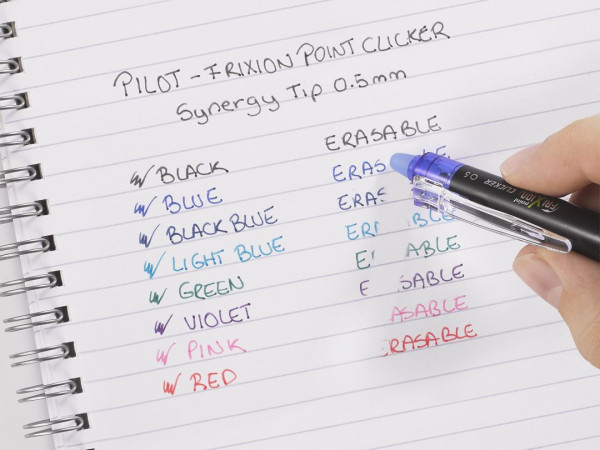 PILOT - FRIXION POINT CLICKER
Synergy Tip 0.5mm
ERASABLE
BLACK
BLUE ERAS LE
BLACK BLUE ERAS
LIGHT BLUE ER BLE
GREEN E ABLE
VIOLET E SABLE
PINK ASABLE
RED ERASABLE
point
FRIXION CLICKER 0.5